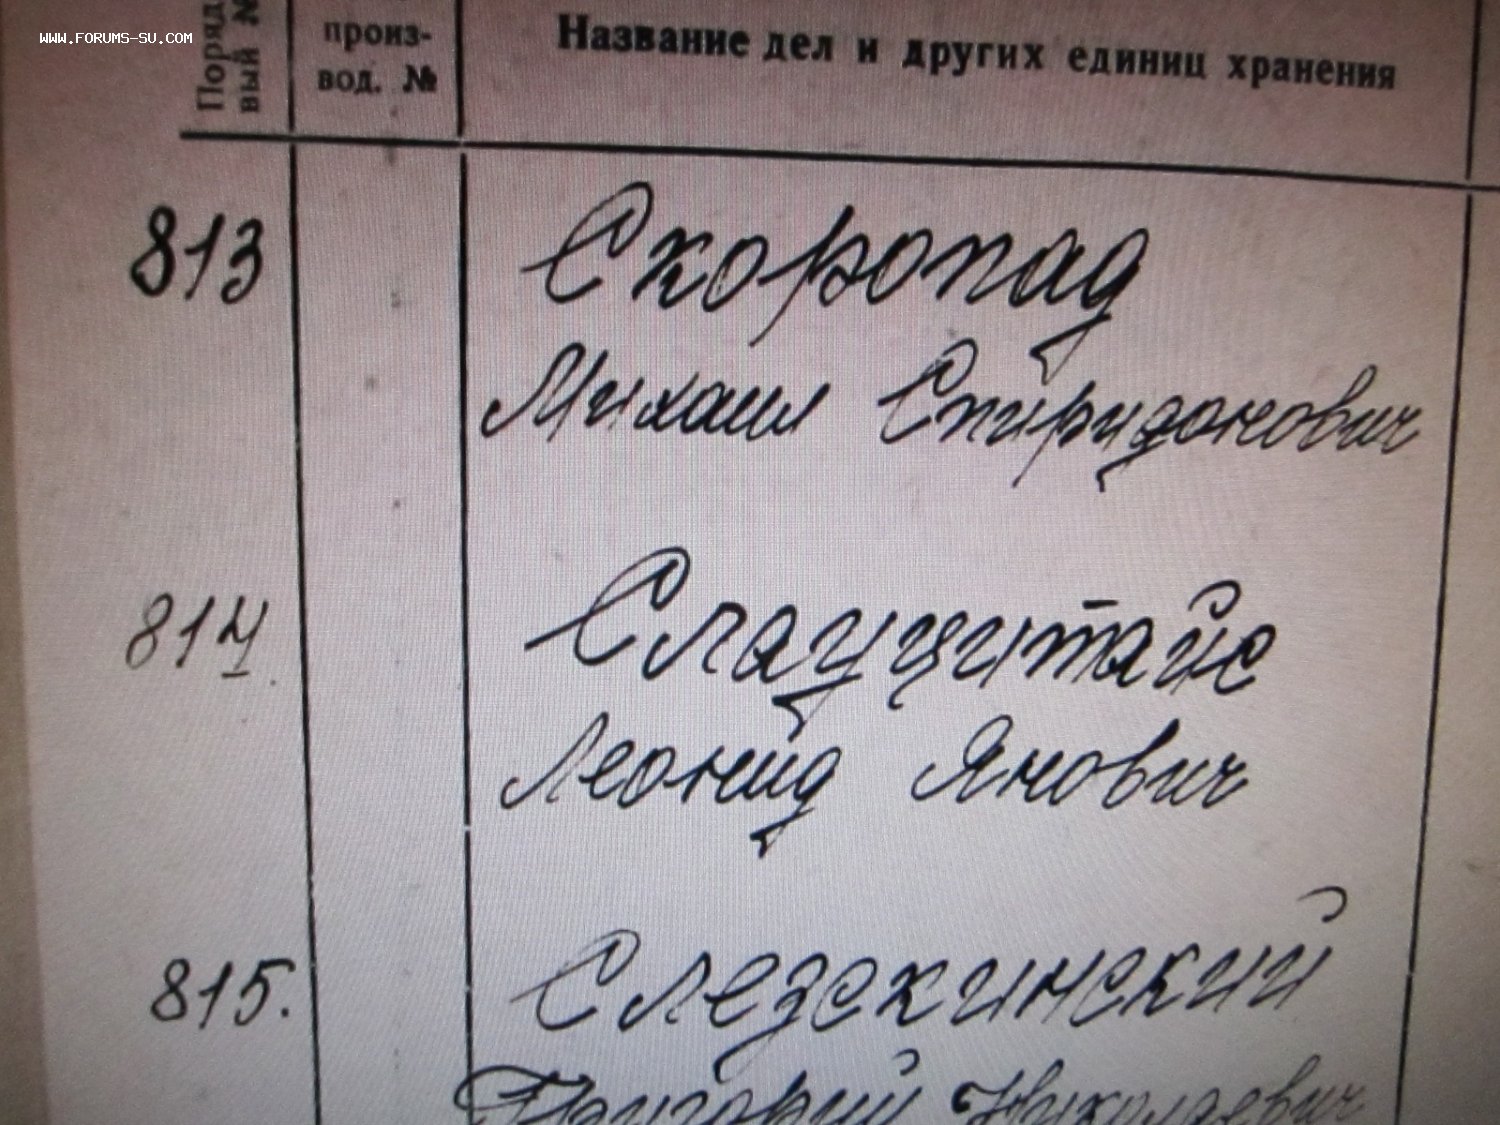 WWW.FORUMS-SU.COM
Поряд
вый №
произ-
вод. №
Название дел и других единиц хранения
813
Скоропад
Михаил Спиридонович
814
Слауцитайс
Леонид Янович
815.
Слезскинский
Григорий Николаевич